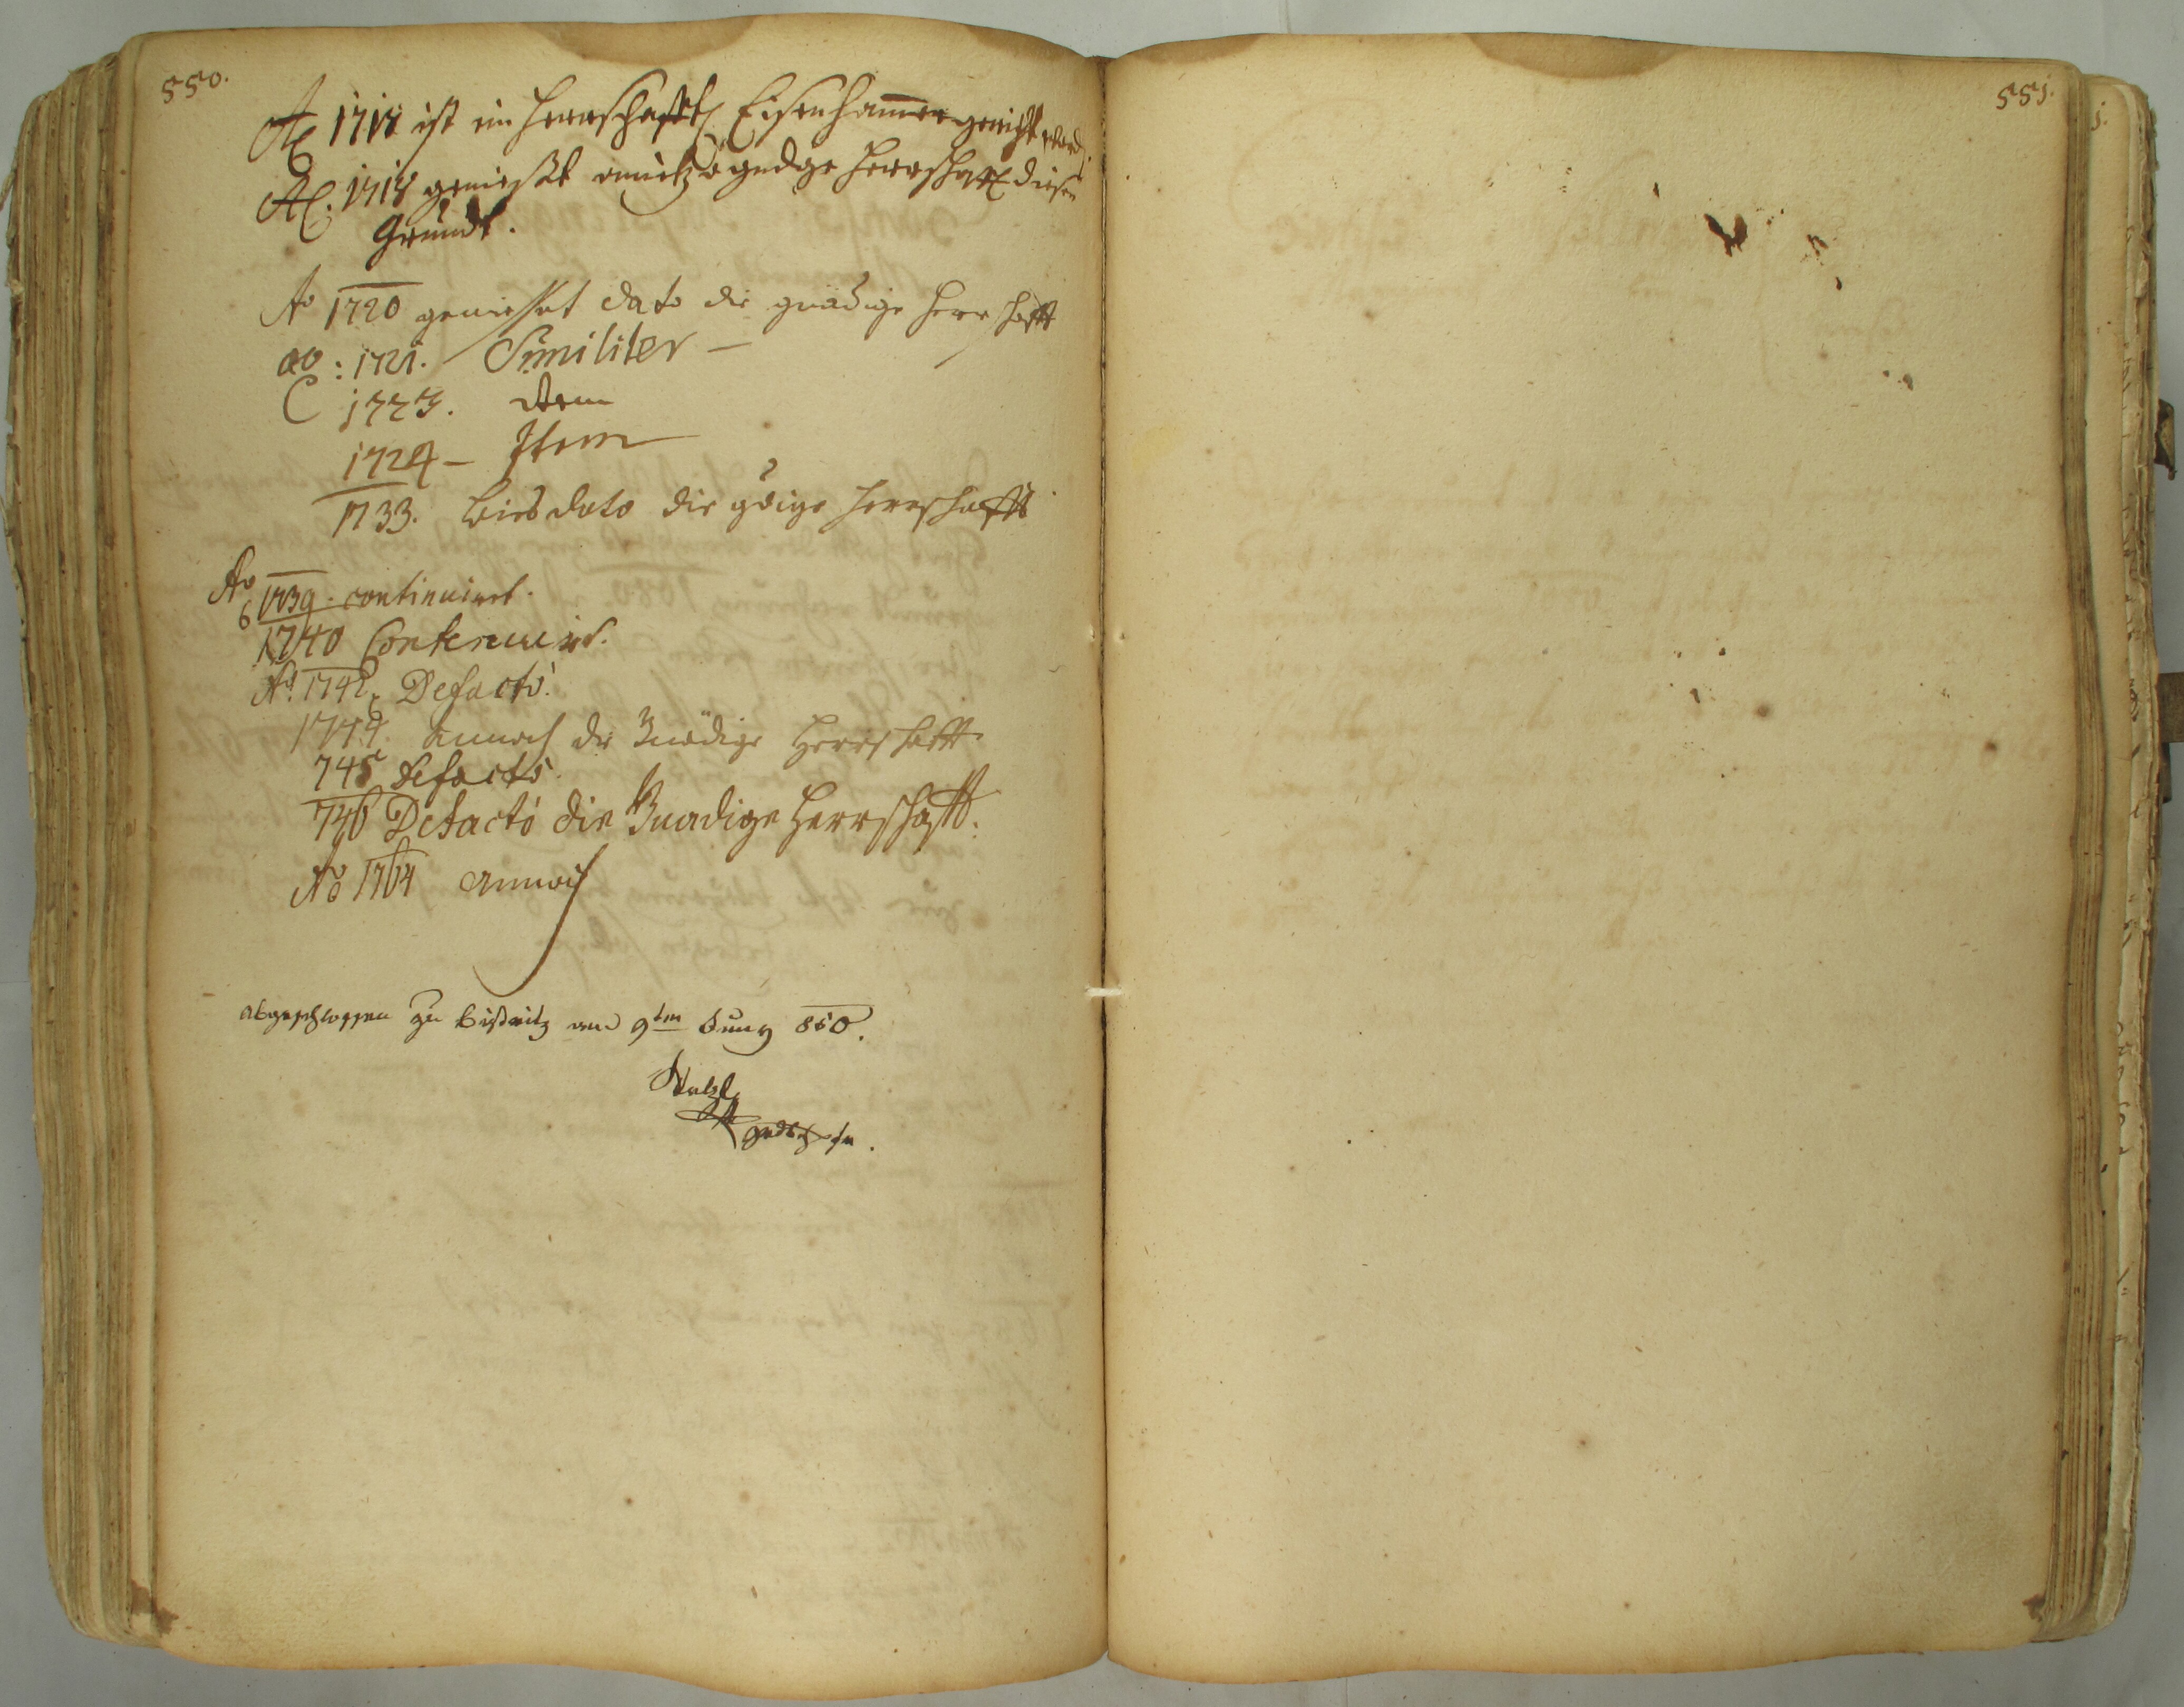 550.
Ao 1717 ist ein Herrschafftl Eisenhammer gericht word.
Ao. 1718 genießet gndge Herrschafft diesen
Grundt.
Ao 1720 geniesset dato die gnädige Herrschafft
ao: 1721. Similiter —
1723. Item
1724 — Item
1733. bies dato die gdige Herrschafft
Ao 1739. continuiret.
1740 Contenuirt.
Ao. 1742 Defacto.
1744. annoch die Gnädige Herrschafft
745 Defacto.
746 Defacto die Gnadige Herrschafft.
Ao 1764 annoch
abgeschlossen zu Bistritz am 9ten Juny 850.
551.